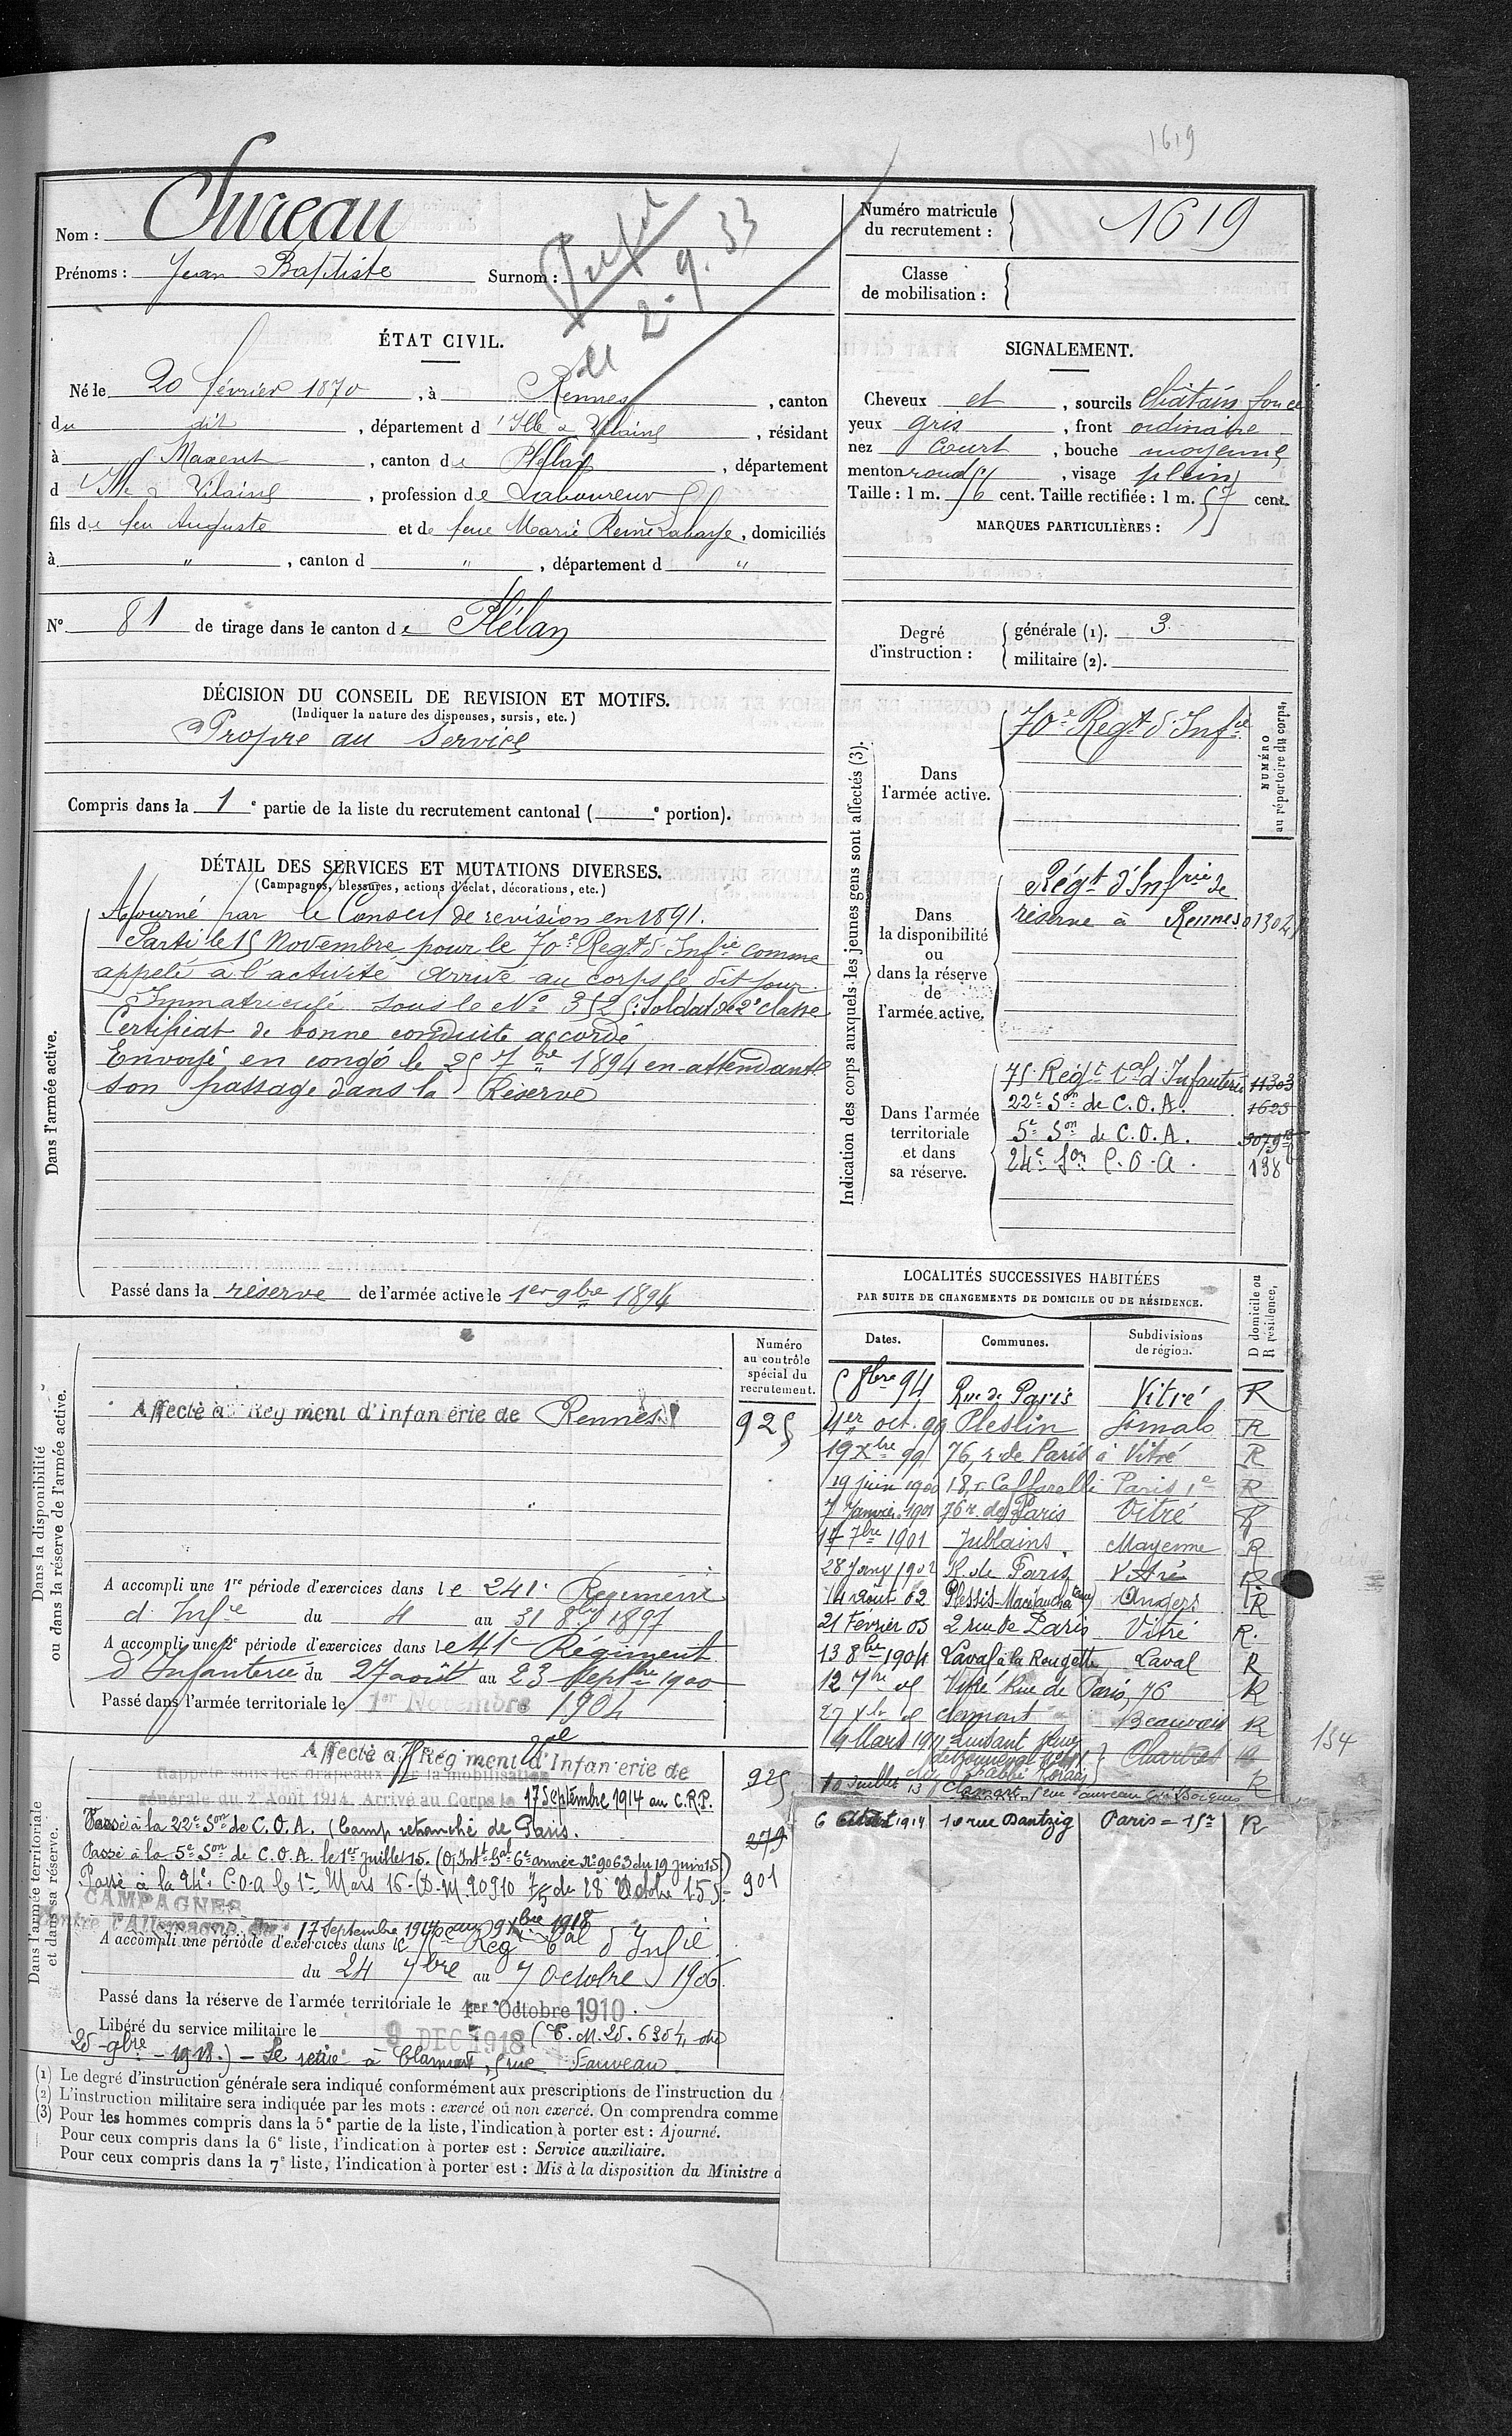 1619
Nom : Sureau
Prénoms : Jean Baptiste Surnom :
2.9.33
Numéro matricule du recrutement : 1619
Classe de mobilisation :
ÉTAT CIVIL.
Né le 20 février 1870, à Rennes, canton
du dit, département d'Ille & Vilaine, résidant
à Maxent, canton de Plélan, département
d'Ille & Vilaine, profession de Laboureur
fils de feu Auguste et de feue Marie Reine, domiciliés
à " , canton d " , département d "
N° 81 de tirage dans le canton de Plélan
SIGNALEMENT.
Cheveux et , sourcils Châtain foncé
yeux gris , front ordinaire
nez court , bouche moyenne
menton rond , visage plein
Taille : 1 m. 56 cent. Taille rectifiée : 1 m. 57 cent.
MARQUES PARTICULIÈRES :
Degré d'instruction :
générale (1). 3
militaire (2).
DÉCISION DU CONSEIL DE REVISION ET MOTIFS.
(Indiquer la nature des dispenses, sursis, etc.)
Propre au service
Compris dans la 1e partie de la liste du recrutement cantonal ( e portion).
DÉTAIL DES SERVICES ET MUTATIONS DIVERSES.
(Campagnes, blessures, actions d'éclat, décorations, etc.)
Dans l'armée active.
Ajourné par le Conseil de revision en 1891.
Parti le 15 Novembre pour le 70e Regt d'Infie comme
appelé à l'activité arrivé au corps le dit jour.
Immatriculé sous le No 3525. Soldat de 2e classe
Certificat de bonne conduite accordé
Envoyé en congé le 25 7bre 1894 en attendant
son passage dans la Réserve
Passé dans la réserve de l'armée active le 1er 9bre 1894
Indication des corps auxquels les jeunes gens sont affectés (3).
NUMÉRO au répertoire du corps.
Dans l'armée active.
70e Regt d'Infie
Dans la disponibilité ou dans la réserve de l'armée active.
Régt d'Infrie de
réserve à Rennes
Dans l'armée territoriale et dans sa réserve.
75 Regt tal d'Infanterie 11303
22e Son de C.O.A. 1625
5e Son de C.O.A.
24e Son C.O.A. 138
LOCALITÉS SUCCESSIVES HABITÉES
PAR SUITE DE CHANGEMENTS DE DOMICILE OU DE RÉSIDENCE.
Dates. Communes. Subdivisions de région. D domicile ou R résidence.
5 8bre 94 Rue de Paris Vitré R
1er oct. 99 Pleslin St malo R
19 Xbre 99 76, r. de Paris à Vitré R
19 juin 1900 18, r Caffarelli Paris 1e R
7 Janvier 1901 76 r. de Paris Vitré R
14 7bre 1901 Jublains. Mayenne R
28 Janv 1902 R. de Paris Vitré R
14 Août 02 Plessis-Macé Angers R
21 Février 03 2 rue de Paris Vitré R.
13 8bre 1904 Laval à la Rougette Laval R
12 7bre 05 Vitré Rue de Paris, 76 R
27 Xbre 05 Clermont Beauvais R
14 Mars 1911 Luisant Chartres R
10 Juillet 13 Clamart, 5 rue Fauveau R
6 Août 1914 10 rue Dantzig Paris = 15e R
134
Dans la disponibilité ou dans la réserve de l'armée active.
Numéro au contrôle spécial du recrutement.
Affecté au Régiment d'Infanterie de Rennes 925
A accompli une 1re période d'exercices dans le 241e Régiment
d'Infie du 4 au 31 8bre 1897
A accompli une 2e période d'exercices dans le 41e Régiment
d'Infanterie du 27 août au 23 Septbre 1900
Passé dans l'armée territoriale le 1er Novembre 1904
Dans l'armée territoriale et dans sa réserve.
Affecté au 75 Régiment tal d'Infanterie de 925
Rappelé sous les drapeaux par la mobilisation
générale du 2 Août 1914. Arrivé au Corps le 17 Septembre 1914 au C.R.P.
Passé à la 22e Son de C.O.A. (Camp retranché de Paris. 279
Passé à la 5e Son de C.O.A. le 1er Juillet 15. (O. Intt Gal 6e armée No 9063 du 19 juin 15.) 901
Passé à la 24e C.O.A le 1er Mars 16 - (D.M. 20910 7/5 du 28 Octobre 15)
CAMPAGNES
contre l'Allemagne du 17 Septembre 1914 au 9 Xbre 1918
A accompli une période d'exercices dans le 75e Reg tal d'Infie
du 24 7bre au 7 Octobre 1906.
Passé dans la réserve de l'armée territoriale le 1er Octobre 1910.
Libéré du service militaire le 9 DEC 1918 (C.M. 20.6304, du
25-9bre-1918.) - Se retire à Clamart, 5 rue Fauveau
(1) Le degré d'instruction générale sera indiqué conformément aux prescriptions de l'instruction du
(2) L'instruction militaire sera indiquée par les mots : exercé ou non exercé. On comprendra comme
(3) Pour les hommes compris dans la 5e partie de la liste, l'indication à porter est : Ajourné.
Pour ceux compris dans la 6e liste, l'indication à porter est : Service auxiliaire.
Pour ceux compris dans la 7e liste, l'indication à porter est : Mis à la disposition du Ministre d